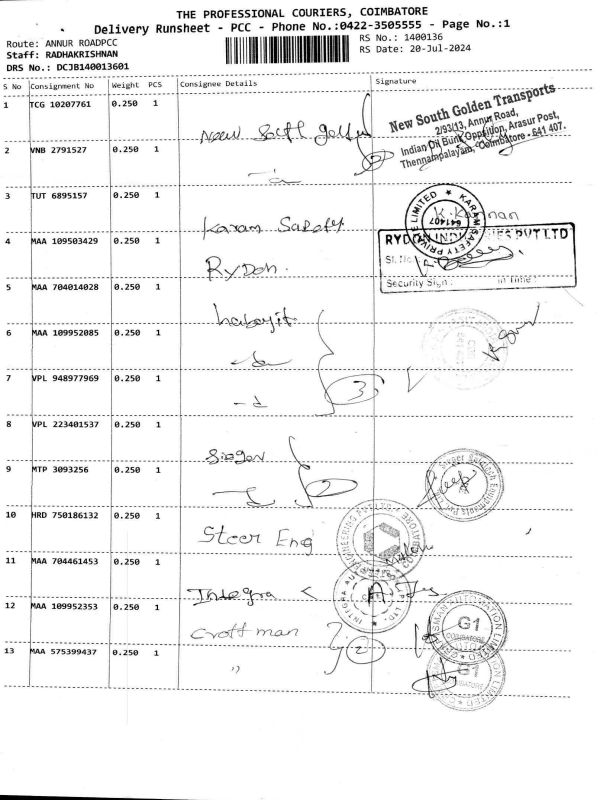 THE PROFESSIONAL COURIERS, COIMBATORE
Delivery Runsheet - PCC - Phone No.:0422-3505555 - Page No.:1
Route: ANNUR ROADPCC
RS No.: 1400136
Staff: RADHAKRISHNAN
RS Date: 20-Jul-2024
DRS No.: DCJB140013601
S No Consignment No Weight PCS Consignee Details Signature
1 TCG 10207761 0.250 1
New South Golden Transports
2/93/13, Annur Road,
Indian Oil Bunk Opposition, Arasur Post,
Thennampalayam, Coimbatore - 641 407.
New South golden
2 VNB 2791527 0.250 1
2
3 TUT 6895157 0.250 1
Karam Safety
KARAM SAFETY PRIVATE LIMITED
641407
K. Kannan
4 MAA 109503429 0.250 1
Rydon.
RYDON INDUSTRIES PVT LTD
Sl. No
Security Sign: in Time:
5 MAA 704014028 0.250 1
6 MAA 109952085 0.250 1
7 VPL 948977969 0.250 1
3
8 VPL 223401537 0.250 1
9 MTP 3093256 0.250 1
2
10 HRD 750186132 0.250 1
Steer Eng
ENGINEERING PVT LTD
COIMBATORE
11 MAA 704461453 0.250 1
Integra
INTEGRA AUTOMATION PVT. LTD.
12 MAA 109952353 0.250 1
Croftman
2
G1
COIMBATORE
13 MAA 575399437 0.250 1
"
G1